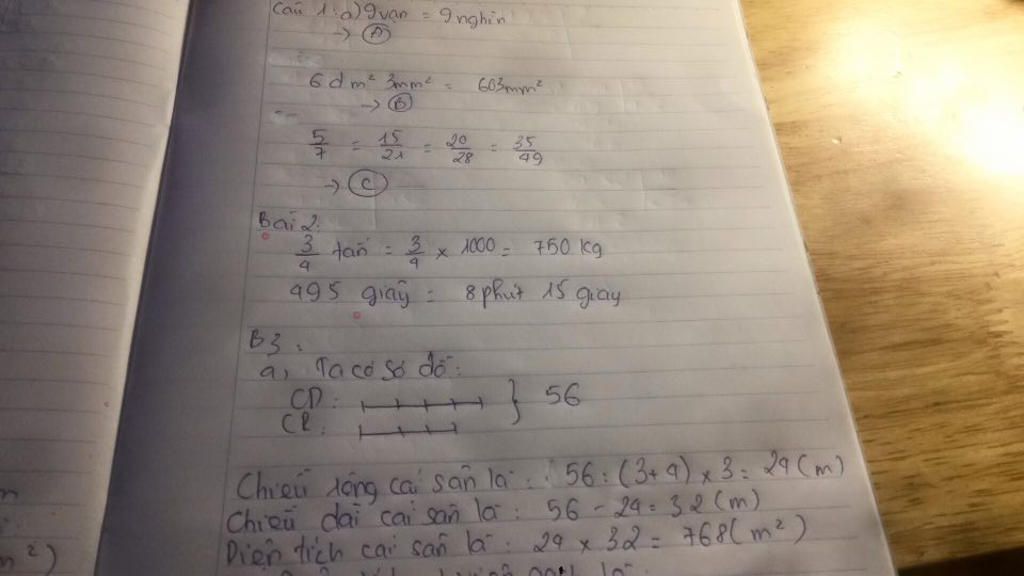 Câu 1: a) 9 vạn = 9 nghìn
→ A
6 dm² 3mm² = 603mm²
→ B
5/7 = 15/21 = 20/28 = 35/49
→ C
Bài 2:
3/4 tấn = 3/4 × 1000 = 750 kg
495 giây = 8 phút 15 giây
B3:
a, Ta có sơ đồ:
CD: } 56
CR:
Chiều rộng cái sân là: 56 : (3+4) × 3 = 24 (m)
Chiều dài cái sân là: 56 - 24 = 32 (m)
Diện tích cái sân là: 24 × 32 = 768 (m²)
m²)